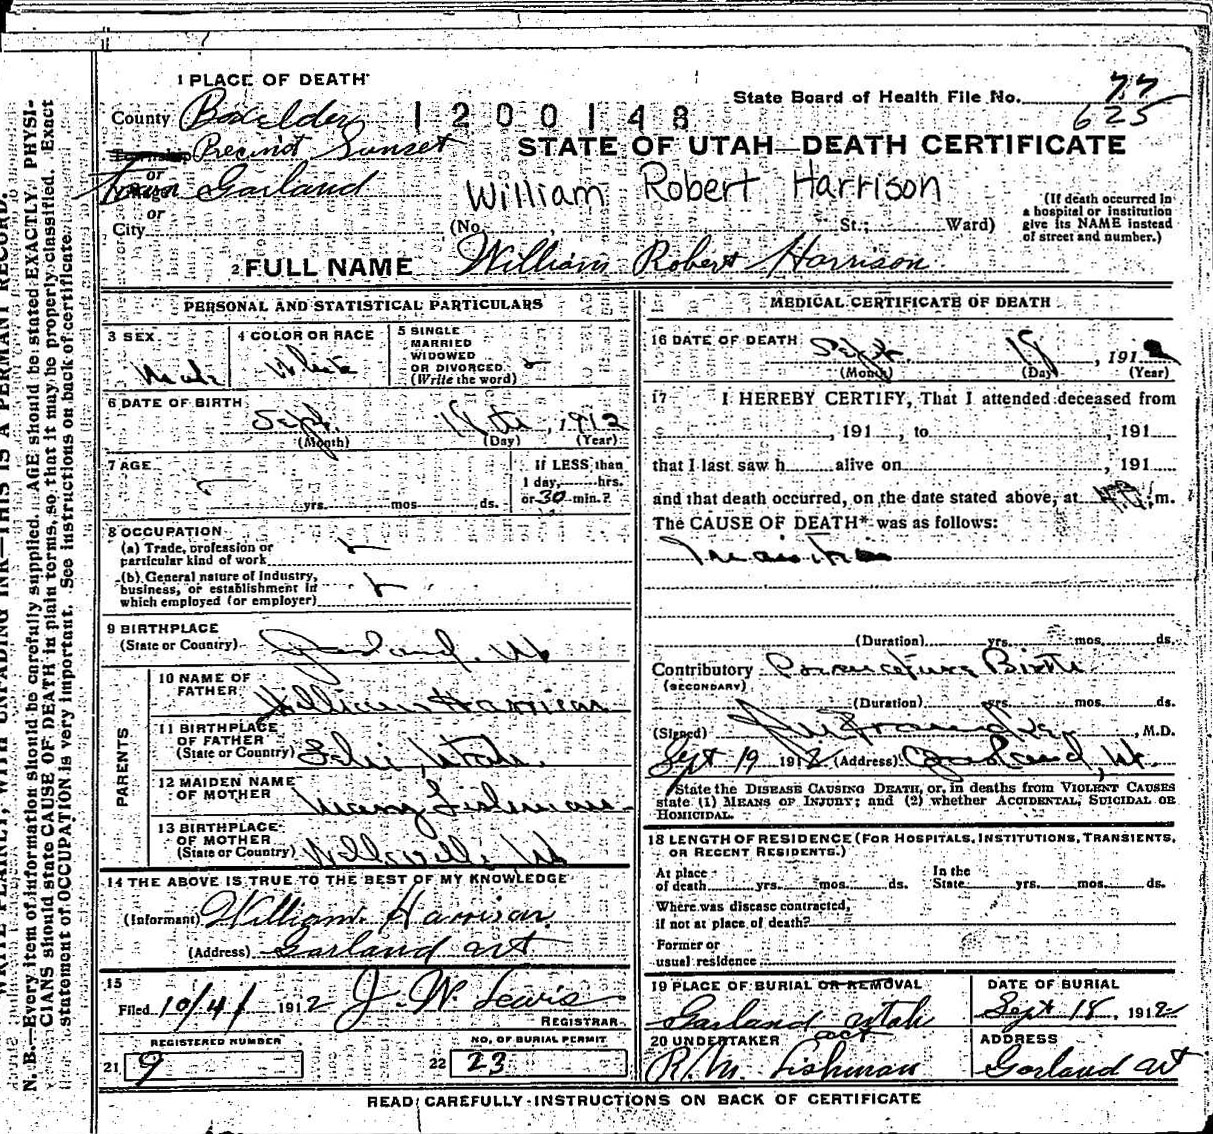 WRITE PLAINLY, WITH UNFADING INK—THIS IS A PERMANT RECORD.
N. B.—Every item of information should be carefully supplied. AGE should be stated EXACTLY. PHYSI-
CIANS should state CAUSE OF DEATH in plain terms, so that it may be properly classified. Exact
statement of OCCUPATION is very important. See instructions on back of certificate.
1 PLACE OF DEATH
State Board of Health File No. 77
625
County Boxelder 1200148
Township Precinct Sunset
STATE OF UTAH—DEATH CERTIFICATE
or
Town Garland
William Robert Harrison
or
City (No. St.; Ward)
(If death occurred in
a hospital or institution
give its NAME instead
of street and number.)
2 FULL NAME William Robert Harrison
PERSONAL AND STATISTICAL PARTICULARS
3 SEX Male
4 COLOR OR RACE White
5 SINGLE
MARRIED
WIDOWED
OR DIVORCED
(Write the word)
6 DATE OF BIRTH
Sept. 18th, 1912
(Month) (Day) (Year)
7 AGE
yrs. mos. ds.
If LESS than
1 day, hrs.
or 30 min.?
8 OCCUPATION
(a) Trade, profession or
particular kind of work
(b) General nature of Industry,
business, or establishment in
which employed (or employer)
9 BIRTHPLACE
(State or Country) Garland, Ut
PARENTS
10 NAME OF
FATHER William Harrison
11 BIRTHPLACE
OF FATHER
(State or Country) Utah.
12 MAIDEN NAME
OF MOTHER Mary Lishman
13 BIRTHPLACE
OF MOTHER
(State or Country) Wellsville Ut
14 THE ABOVE IS TRUE TO THE BEST OF MY KNOWLEDGE
(Informant) William Harrison
(Address) Garland Ut
15
Filed 10/4/ 1912 J. W. Lewis
REGISTRAR
REGISTERED NUMBER
21 9
NO. OF BURIAL PERMIT
22 23
MEDICAL CERTIFICATE OF DEATH
16 DATE OF DEATH Sept 18, 191
(Month) (Day) (Year)
17 I HEREBY CERTIFY, That I attended deceased from
, 191 , to , 191
that I last saw h alive on , 191
and that death occurred, on the date stated above, at m.
The CAUSE OF DEATH* was as follows:
(Duration) yrs. mos. ds.
Contributory Premature Birth
(SECONDARY)
(Duration) yrs. mos. ds.
(Signed) M.D.
Sept 19 1912 (Address) Garland, Ut.
State the DISEASE CAUSING DEATH, or, in deaths from VIOLENT CAUSES
state (1) MEANS OF INJURY; and (2) whether ACCIDENTAL, SUICIDAL OR
HOMICIDAL.
18 LENGTH OF RESIDENCE (FOR HOSPITALS, INSTITUTIONS, TRANSIENTS,
OR RECENT RESIDENTS.)
At place
of death yrs. mos. ds.
In the
State yrs. mos. ds.
Where was disease contracted,
if not at place of death?
Former or
usual residence
19 PLACE OF BURIAL OR REMOVAL
Garland Utah
DATE OF BURIAL
Sept 18, 1912
20 UNDERTAKER act
R. M. Lishman
ADDRESS
Garland Ut
READ CAREFULLY INSTRUCTIONS ON BACK OF CERTIFICATE